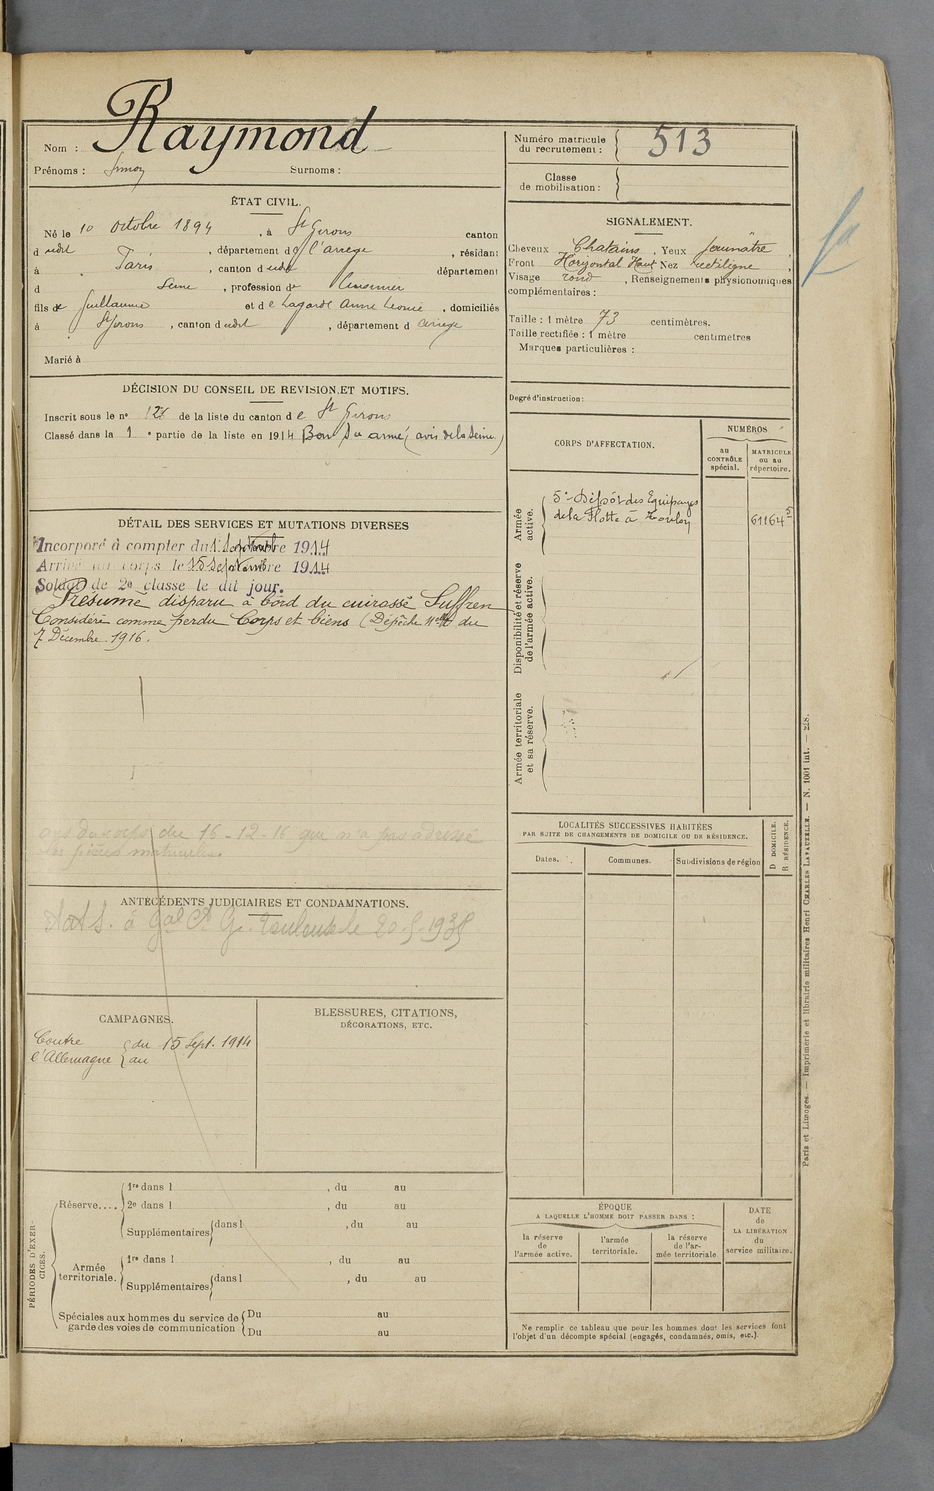 Nom : Raymond
Prénoms : Simon Surnoms :
ÉTAT CIVIL.
Né le 10 octobre 1894, à St Girons canton
dudit, département de l'Arrege, résidant
à Paris, canton dudit département
d Seine, profession de Cuisinier
fils de Guillaume et de Lagarde Anne Leonie, domiciliés
à St Girons, canton dudit, département d Arrege
Marié à
DÉCISION DU CONSEIL DE REVISION ET MOTIFS.
Inscrit sous le no 128 de la liste du canton de St Girons
Classé dans la 1e partie de la liste en 1914 Bon Sce armé (avis de la Seine)
DÉTAIL DES SERVICES ET MUTATIONS DIVERSES
Incorporé à compter du 1914
Arrivé au corps le 15 Septembre 1914
Soldat de 2e classe le dit jour.
Présumé disparu à bord du cuirassé Suffren
Considéré comme perdu Corps et biens (Dépêche du
7 Décembre 1916.
avis du corps du 16-12-16 qui n'a pas adressé
les pièces matricules
ANTÉCÉDENTS JUDICIAIRES ET CONDAMNATIONS.
à Gal Toulouse le 20-5-1935
CAMPAGNES.
Contre l'Allemagne { du 15 Sept. 1914
au
BLESSURES, CITATIONS,
DÉCORATIONS, ETC.
PÉRIODES D'EXERCICES.
Réserve.... 1re dans l , du au
2e dans l , du au
Supplémentaires dans l , du au
Armée territoriale. 1re dans l , du au
Supplémentaires dans l , du au
Spéciales aux hommes du service de garde des voies de communication { Du au
Du au
Numéro matricule
du recrutement : 513
Classe
de mobilisation :
SIGNALEMENT.
Cheveux Chatains, Yeux jaunâtre,
Front Horizontal Haut Nez rectiligne,
Visage rond, Renseignements physionomiques
complémentaires :
Taille : 1 mètre 73 centimètres.
Taille rectifiée : 1 mètre centimètres
Marques particulières :
Degré d'instruction :
CORPS D'AFFECTATION.
NUMÉROS
au CONTRÔLE spécial.
MATRICULE ou au répertoire.
Armée active.
5e Dépôt des Equipages
de la Flotte à Toulon
61164 5
Disponibilité et réserve de l'armée active.
Armée territoriale et sa réserve.
LOCALITÉS SUCCESSIVES HABITÉES
PAR SUITE DE CHANGEMENTS DE DOMICILE OU DE RÉSIDENCE.
D DOMICILE.
R RÉSIDENCE.
Dates. Communes. Subdivisions de région
ÉPOQUE
A LAQUELLE L'HOMME DOIT PASSER DANS :
la réserve de l'armée active.
l'armée territoriale.
la réserve de l'armée territoriale.
DATE de LA LIBÉRATION du service militaire.
Ne remplir ce tableau que pour les hommes dont les services font
l'objet d'un décompte spécial (engagés, condamnés, omis, etc.).
Paris et Limoges. — Imprimerie et librairie militaires Henri CHARLES LAVAUZELLE. — N. 1001 int. — 218.